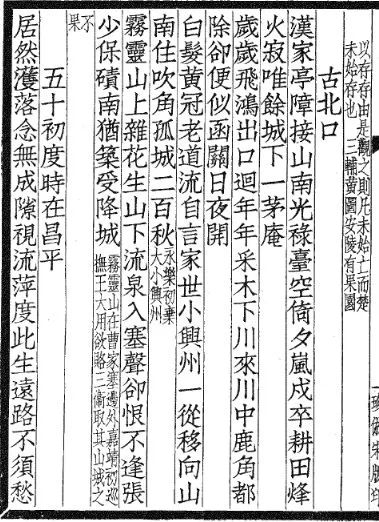 以存存由是觀之則凡未始亡而楚
未始存也 三輔黃圖安陵有果園
古北口
漢家亭障接山南光祿臺空倚夕嵐戍卒耕田烽
火寂唯餘城下一茅庵
歲歲飛鴻出口迴年年采木下川來川中鹿角都
除卻便似函關日夜開
白髮黃冠老道流自言家世小興州一從移向山
南住吹角孤城二百秋 永樂初棄
大小興州
霧靈山上雜花生山下流泉入塞聲卻恨不逢張
少保磧南猶築受降城 霧靈山在曹家寨邊外嘉靖初巡
撫王大用欲略三衛取其山城之
不
果
五十初度時在昌平
居然濩落念無成隙視流萍度此生遠路不須愁